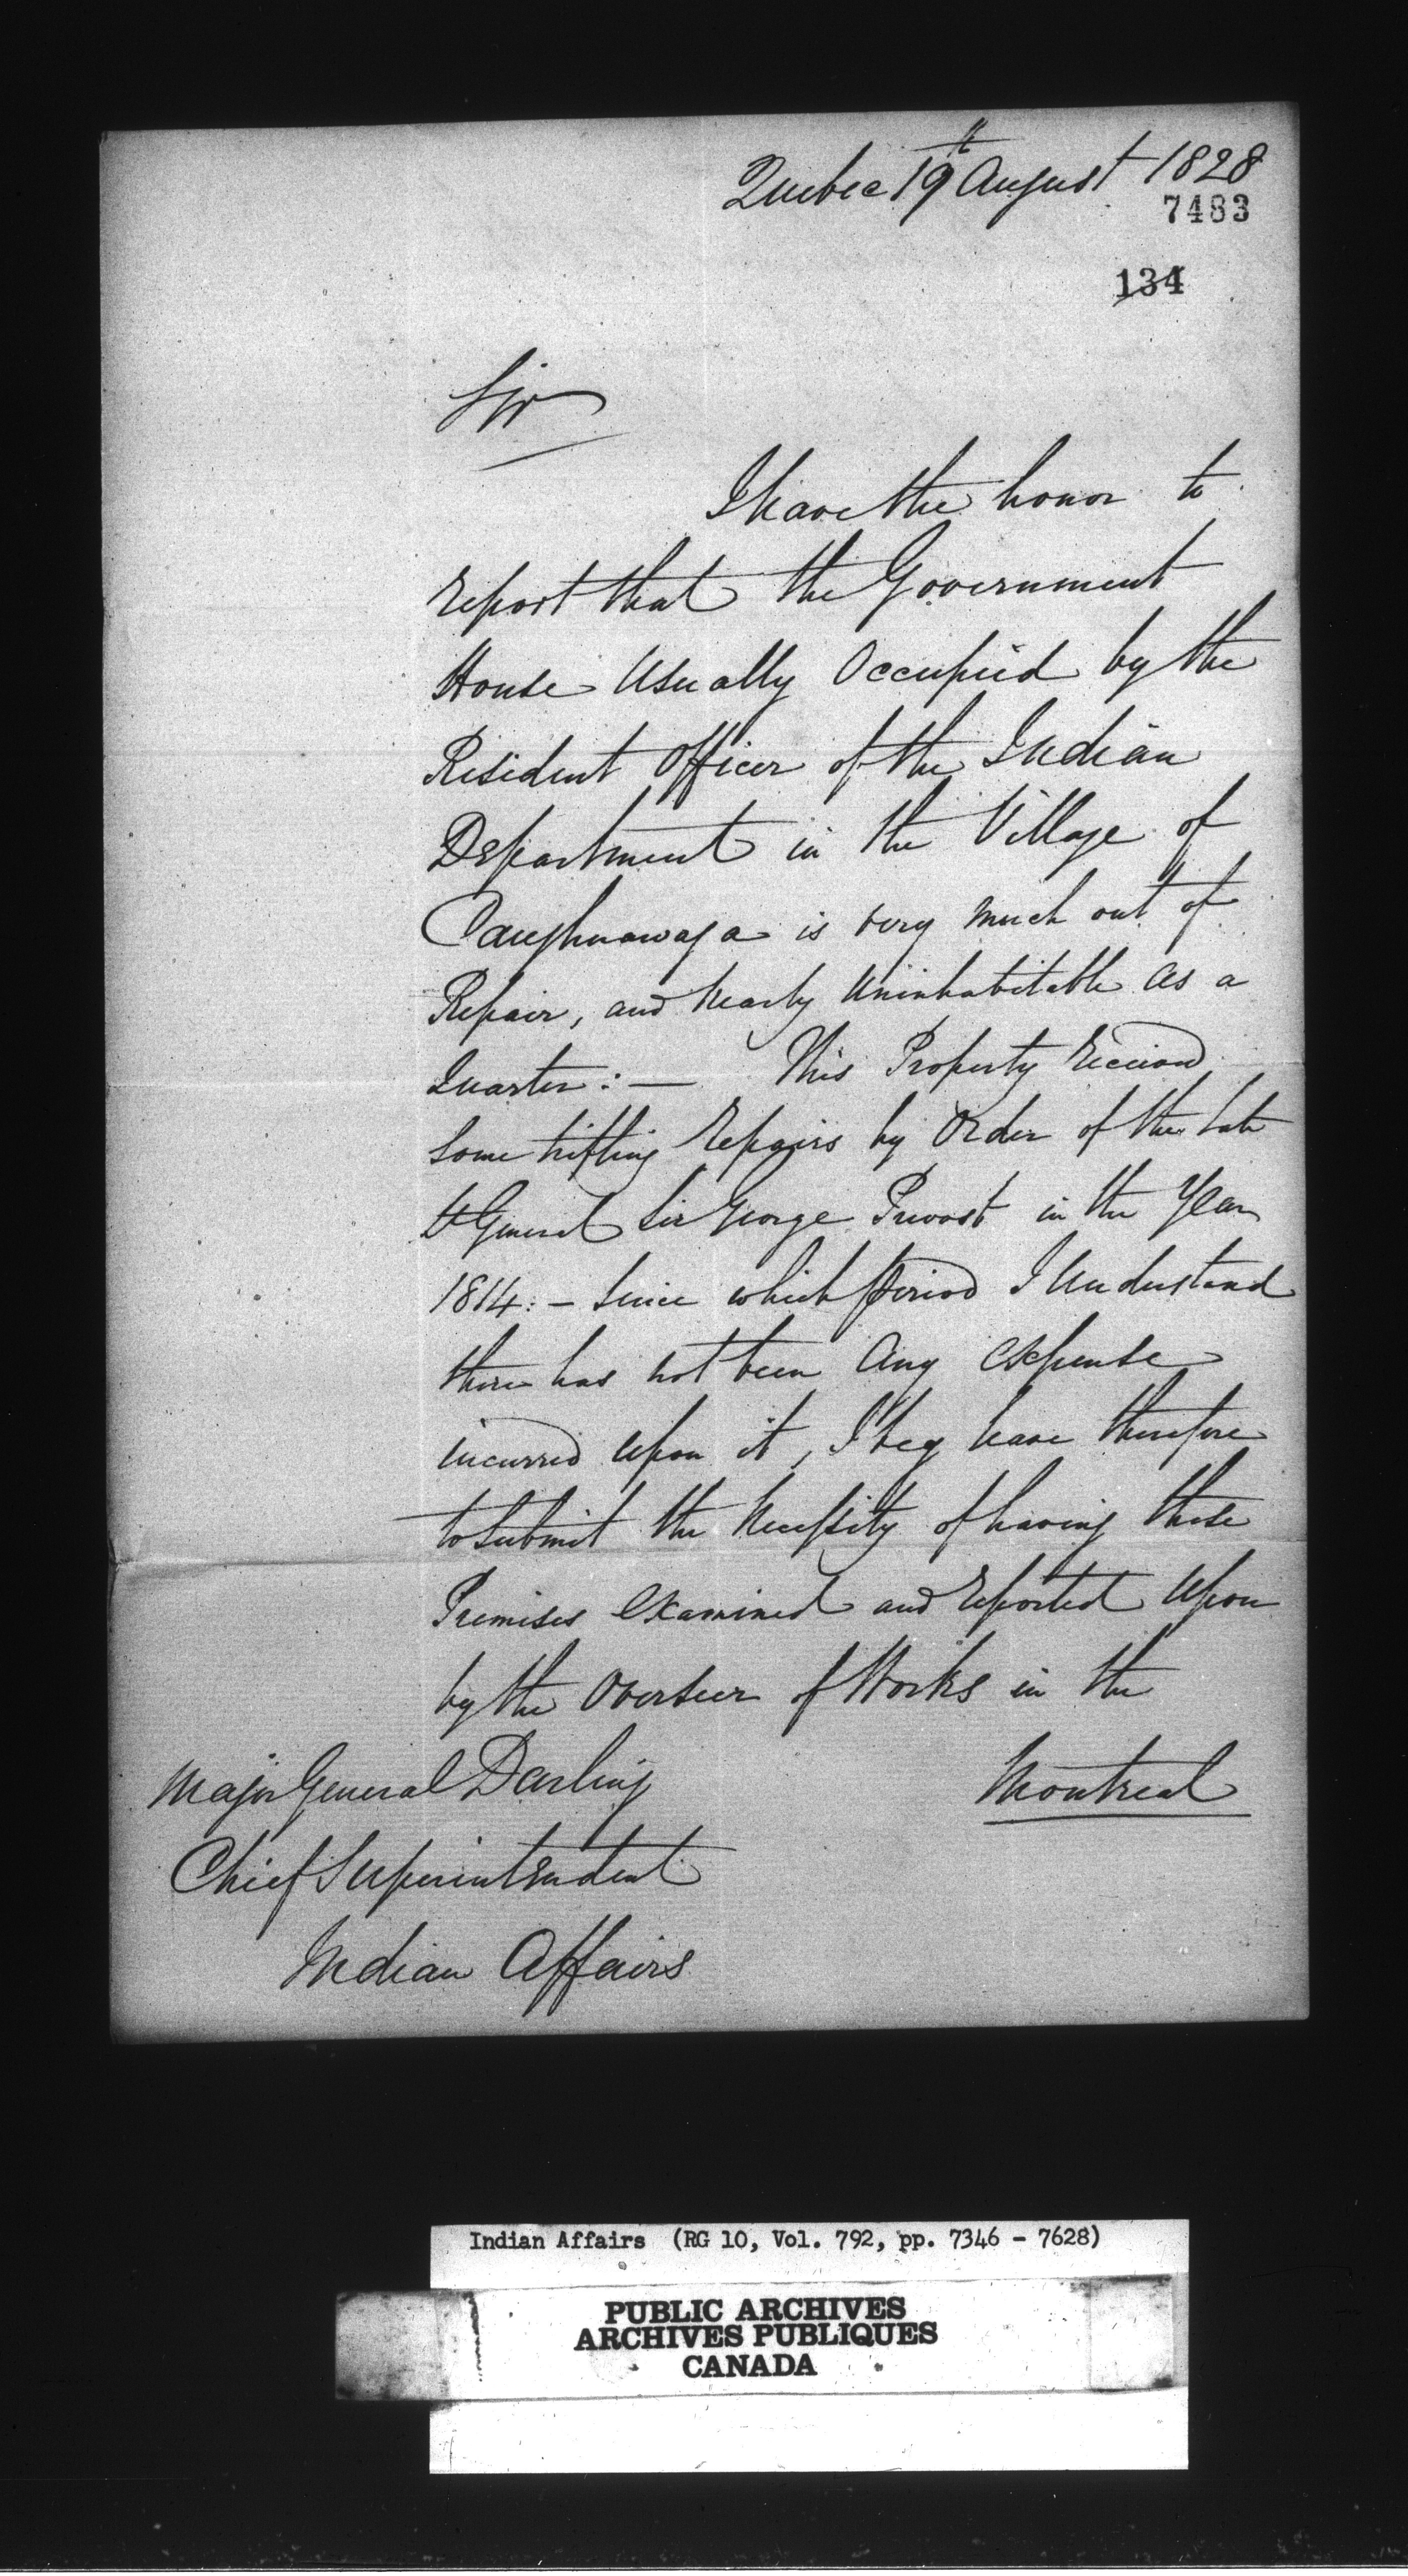 Quebec 19th August 1828
7483
134
Sir
I have the honor to
report that the Government
House Usually Occupied by the
Resident Officer of the Indian
Department in the Village of
Caughnawaga is very much out of
Repair, and Nearly Uninhabitable as a
Quarter:— This Property received
some trifling repairs by Order of the Late
Lt General Sir George Prevost in the Year
1814:— Since which period I Understand
there has not been Any expense
incurred upon it, I beg leave therefore
to submit the Necessity of having these
Premises examined and reported Upon
by the Overseer of Works in the
Montreal
Major General Darling
Chief Superintendent
Indian Affairs
Indian Affairs (RG 10, Vol. 792, pp. 7346 - 7628)
PUBLIC ARCHIVES
ARCHIVES PUBLIQUES
CANADA